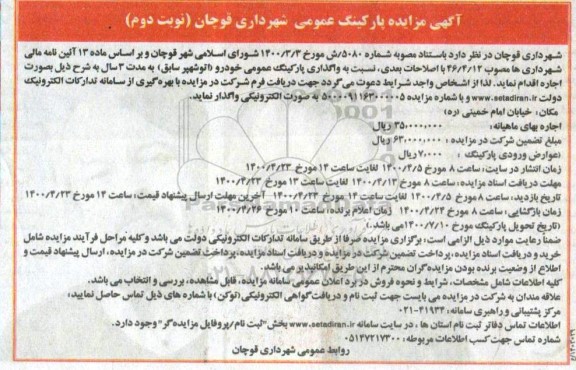 آگهی مزایده پارکینگ عمومی شهرداری قوچان (نوبت دوم)
شهرداری قوچان در نظر دارد باستناد مصوبه شماره ۵۰۸۰/ش مورخ ۱۴۰۰/۳/۳ شورای اسلامی شهر قوچان و بر اساس ماده ۱۳ آئین نامه مالی
شهرداری ها مصوب ۴۶/۴/۱۲ با اصلاحات بعدی، نسبت به واگذاری پارکینگ عمومی خودرو (اتوشهپر سابق) به مدت ۳ سال به شرح ذیل بصورت
اجاره اقدام نماید. لذا از اشخاص واجد شرایط دعوت می گردد جهت دریافت فرم شرکت در مزایده با بهره گیری از سامانه تدارکات الکترونیک
دولت www.setadiran.ir و با شماره مزایده ۵۰۰۰۰۹۱۱۶۳۰۰۰۰۰۵ به صورت الکترونیکی واگذار نماید.
مکان: خیابان امام خمینی (ره)
اجاره بهای ماهیانه: ۳۵۰،۰۰۰،۰۰۰ ریال
مبلغ تضمین شرکت در مزایده : ۶۳۰،۰۰۰،۰۰۰ ریال
(عوارض ورودی پارکینگ : ۷۰،۰۰۰ ریال
زمان انتشار در سایت: ساعت ۸ مورخ ۱۴۰۰/۴/۵ لغایت ساعت ۱۴ مورخ ۱۴۰۰/۴/۲۳
مهلت دریافت اسناد مزایده: ساعت ۸ مورخ ۱۴۰۰/۴/۱۳ لغایت ساعت ۱۳ مورخ ۱۴۰۰/۴/۲۳
تاریخ بازدید: ساعت ۸ مورخ ۱۴۰۰/۴/۵ لغایت ساعت ۱۴ مورخ ۱۴۰۰/۴/۲۳ آخرین مهلت ارسال پیشنهاد قیمت: ساعت ۱۴ مورخ ۱۴۰۰/۴/۲۳
زمان بازگشایی: ساعت ۸ مورخ ۱۴۰۰/۴/۲۴ زمان اعلام برنده: ساعت ۱۰ مورخ ۱۴۰۰/۴/۲۶
(تاریخ تحویل پارکینگ مورخ ۱۴۰۰/۷/۱۰ می باشد.)
ضمنا رعایت موارد ذیل الزامی است: برگزاری مزایده صرفا از طریق سامانه تدارکات الکترونیکی دولت می باشد و کلیه مراحل فرآیند مزایده شامل
خرید و دریافت اسناد مزایده، پرداخت تضمین شرکت در مزایده و دریافت اسناد مزایده، پرداخت تضمین شرکت در مزایده، ارسال پیشنهاد قیمت و
اطلاع از وضعیت برنده بودن مزایده گران محترم از این طریق امکانپذیر می باشد.
کلیه اطلاعات شامل مشخصات، شرایط و نحوه فروش در برد اعلان عمومی سامانه مزایده، قابل مشاهده، بررسی و انتخاب می باشد.
علاقه مندان به شرکت در مزایده می بایست جهت ثبت نام و دریافت گواهی الکترونیکی (توکن) با شماره های ذیل تماس حاصل نمایید:
مرکز پشتیبانی و راهبری سامانه: ۴۱۹۳۴-۰۲۱
اطلاعات تماس دفاتر ثبت نام استان ها ، در سایت سامانه www.setadiran.ir بخش "ثبت نام/پروفایل مزایده گر" وجود دارد.
شماره تماس جهت کسب اطلاعات مربوطه : ۰۵۱۴۷۲۱۷۳۰۰
روابط عمومی شهرداری قوچان